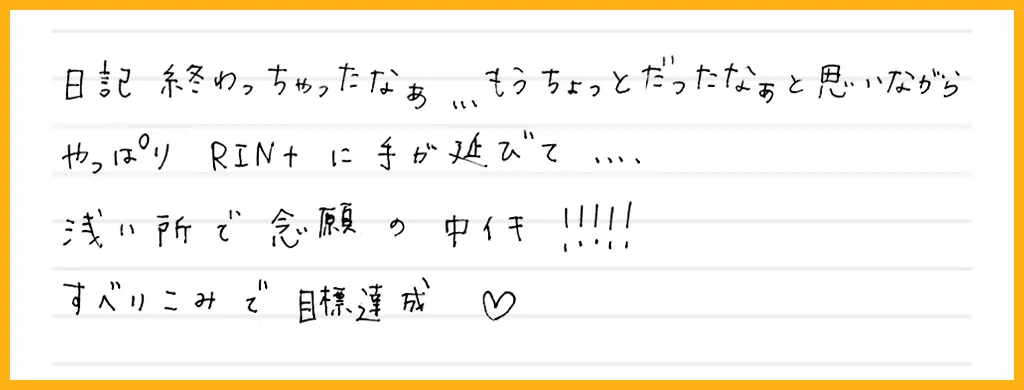 日記 終わっちゃったなぁ...もうちょっとだったなぁと思いながら
やっぱり RIN+ に手が延びて....
浅い所で念願の中イキ!!!!!
すべりこみで目標達成♡